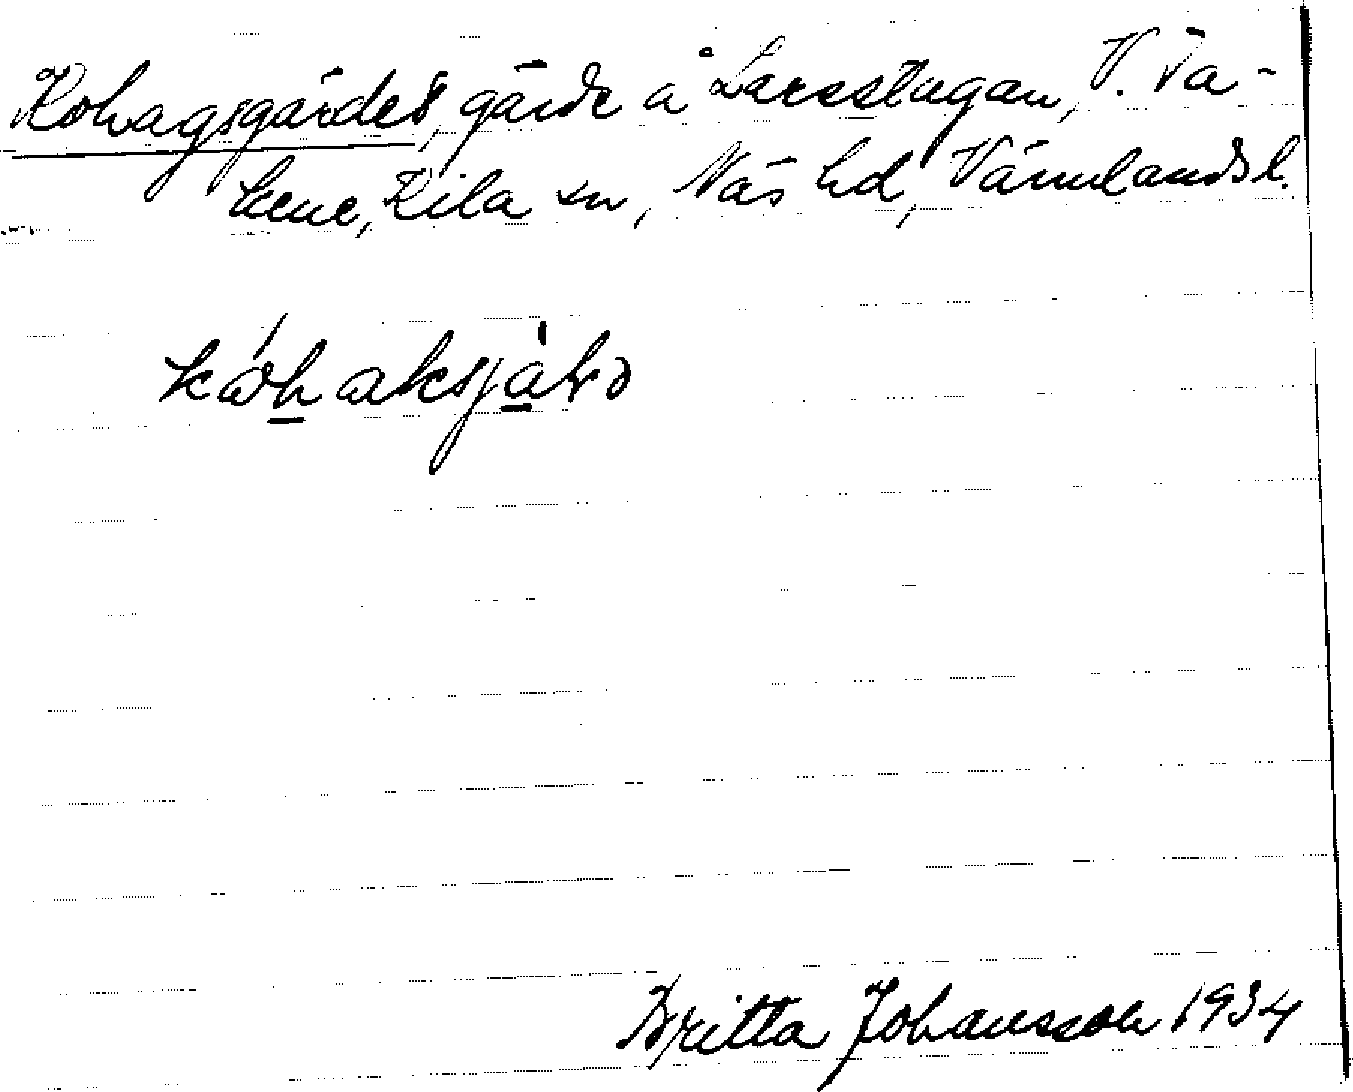 Kohagsgärdet, gärde å Larsstugan, V. Ta-
kene, Kila sn, Näs hd, Värmlands l.
Britta Johansson 1934